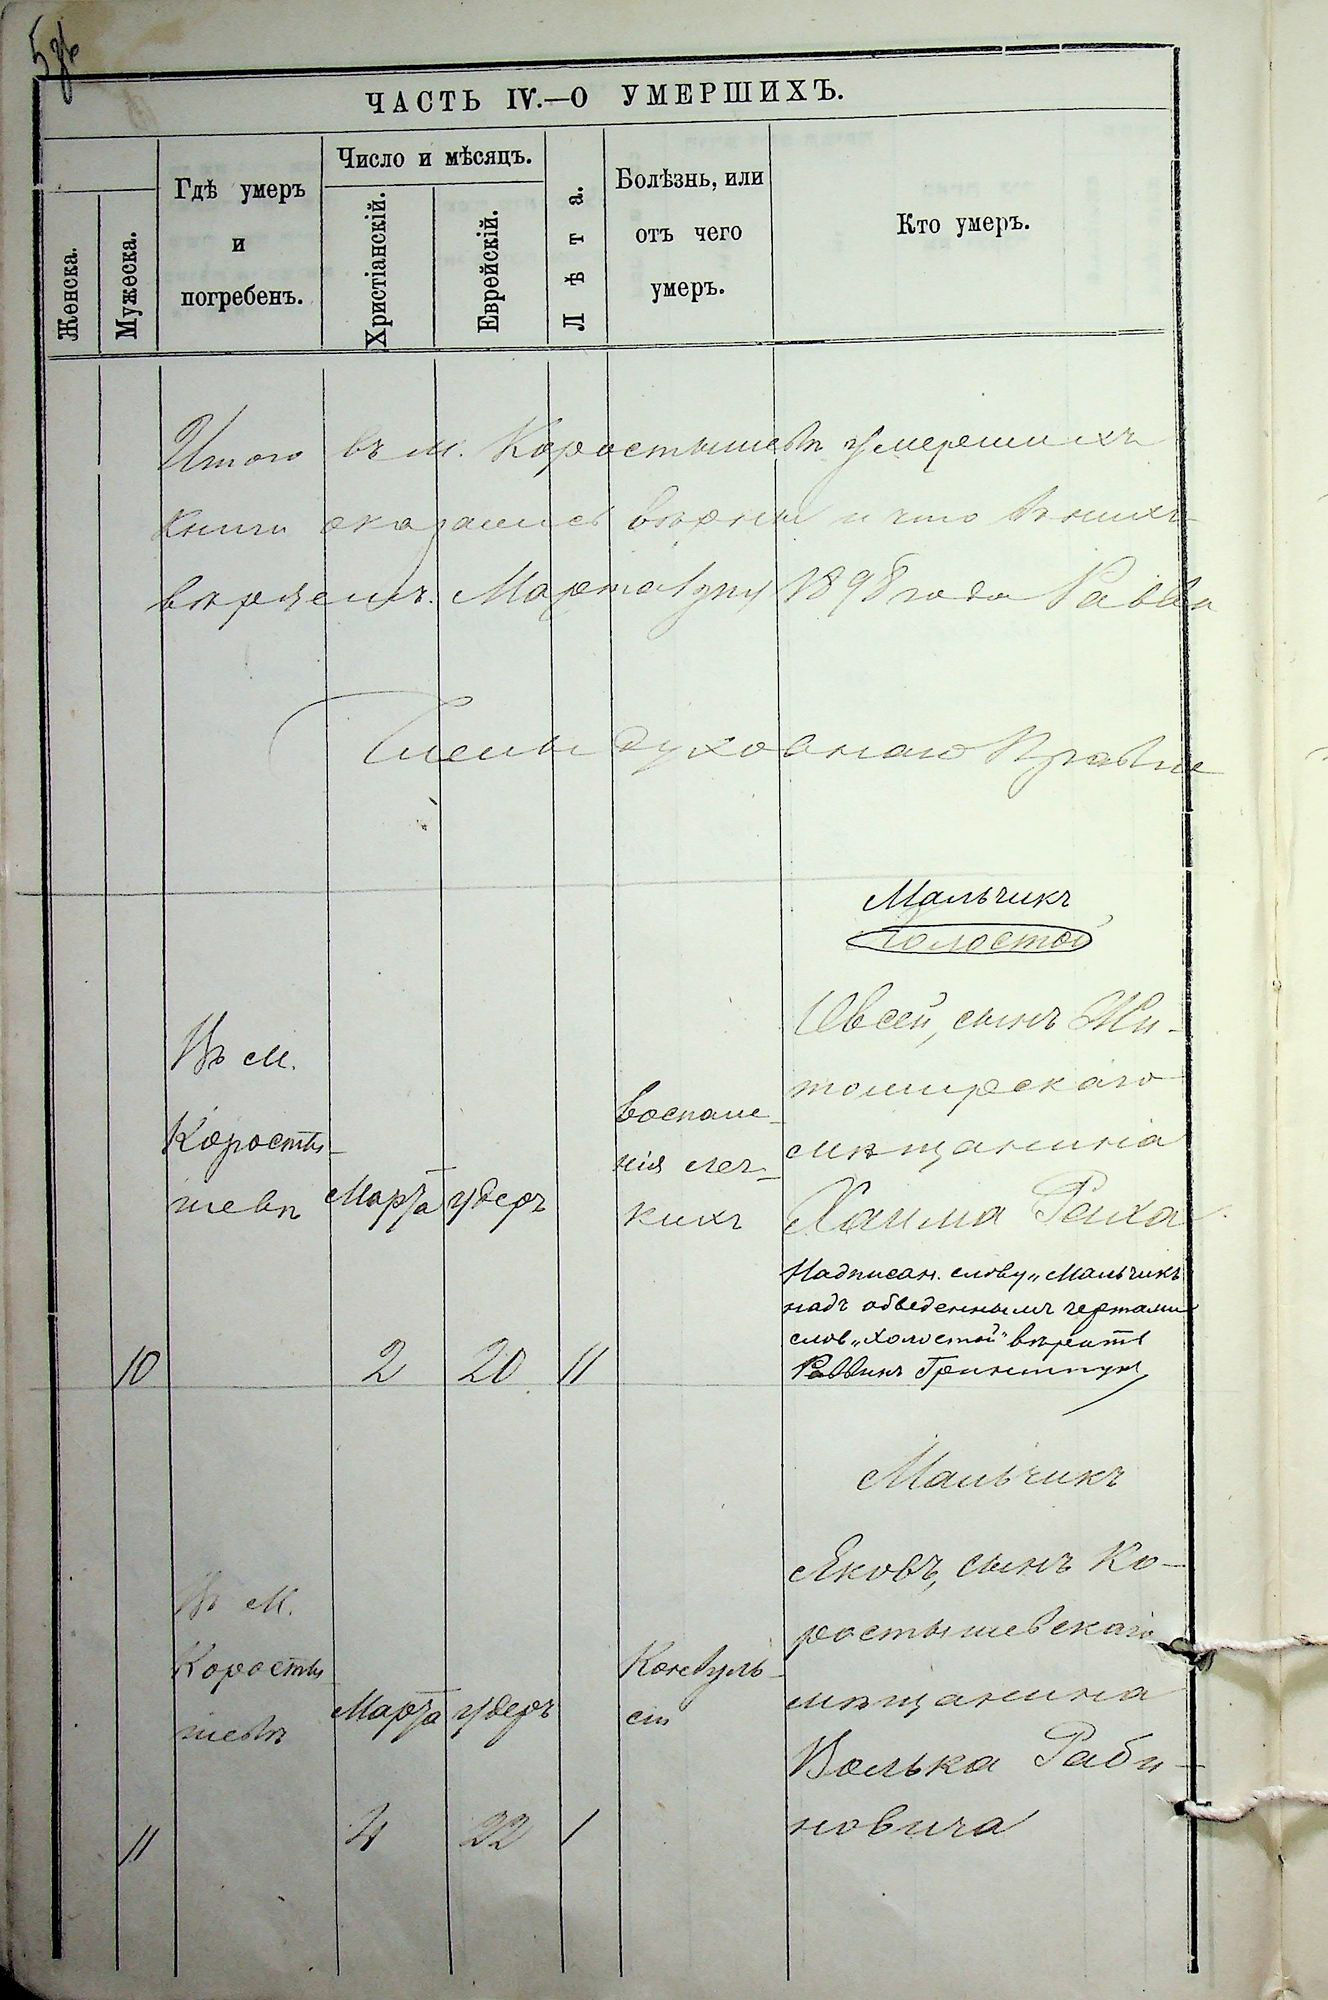 ЧАСТЬ IV.—О УМЕРШИХЪ.
Женска.
Мужеска.
Гдѣ умеръ
и
погребенъ.
Число и мѣсяцъ.
Христіанскій.
Еврейскій.
Лѣта.
Болѣзнь, или
отъ чего
умеръ.
Кто умеръ.
Итого въ м. Коростышевѣ умершихъ
книги оказались вѣрны и что въ нихъ
Марта 1898 года
Члены духовнаго Правле
Мальчикъ
Холостой
10
Въ м.
Коросты-
шевѣ
Марта
2
Удеръ
20
11
Воспале-
нія лег-
кихъ
Овсей, сынъ Жи-
томирскаго
мѣщанина
Хаима Райха
Надписан. слову „Мальчикъ
надъ обведеннымъ чертами
слов „холостой" вѣрить
Раввинъ Гринштун
11
Въ м.
Коросты-
шевѣ
Марта
4
Удеръ
22
1
Конвуль-
сіи
Мальчикъ
Яковъ, сынъ Ко-
ростышевскаго
мѣщанина
Волька Раби-
новича